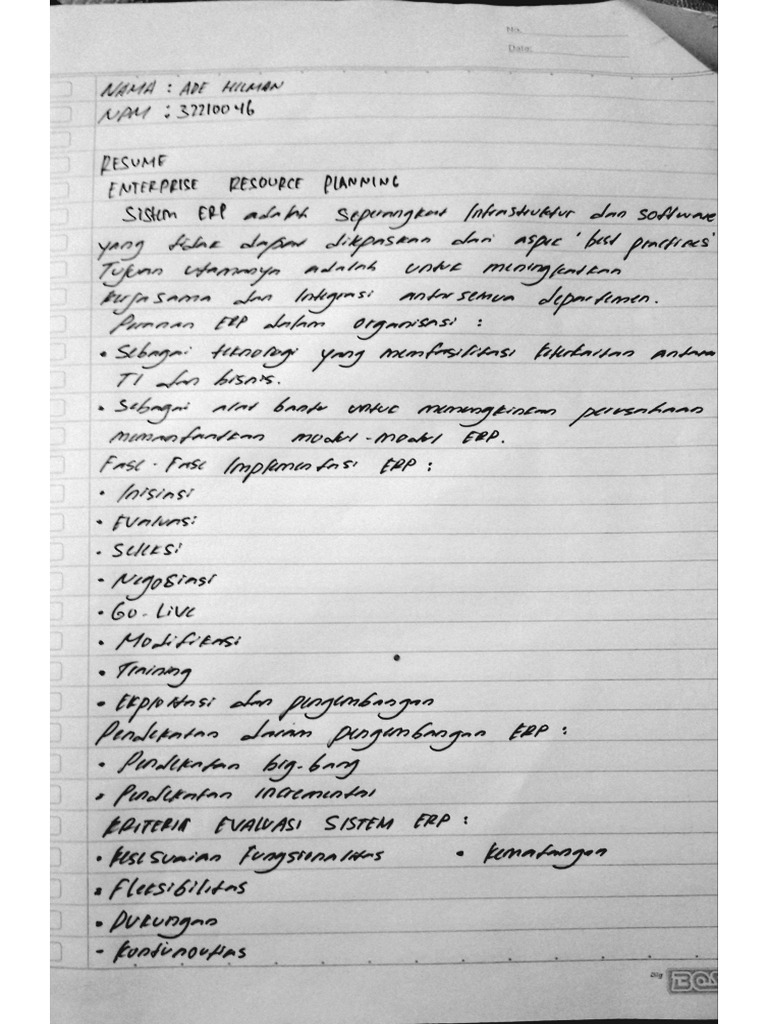 No.
Date:
NAMA : ADE HILMAN
NPM : 32210046
RESUME
ENTERPRISE RESOURCE PLANNING
Sistem ERP adalah seperangkat Infrastruktur dan software
yang tidak dapat dilepaskan dari aspec 'best practices'
Tujuan utamanya adalah untuk meningkatkan
kerjasama dan Integrasi antar semua departemen.
Peranan ERP dalam organisasi :
• Sebagai teknologi yang memfasilitasi keterkaitan antara
TI dan bisnis.
• Sebagai alat bantu untuk memungkinkan perusahaan
memanfaatkan modul-modul ERP.
Fase-Fase Implementasi ERP :
• Inisiasi
• Evaluasi
• Seleksi
• Negosiasi
• Go-Live
• Modifikasi
• Training
• Exploitasi dan pengembangan
Pendekatan dalam pengembangan ERP :
• Pendekatan big-bang
• Pendekatan incremental
KRITERIA EVALUASI SISTEM ERP :
• Kesesuaian Fungsionalitas • Kematangan
• Fleksibilitas
• Dukungan
- Kontinouitas